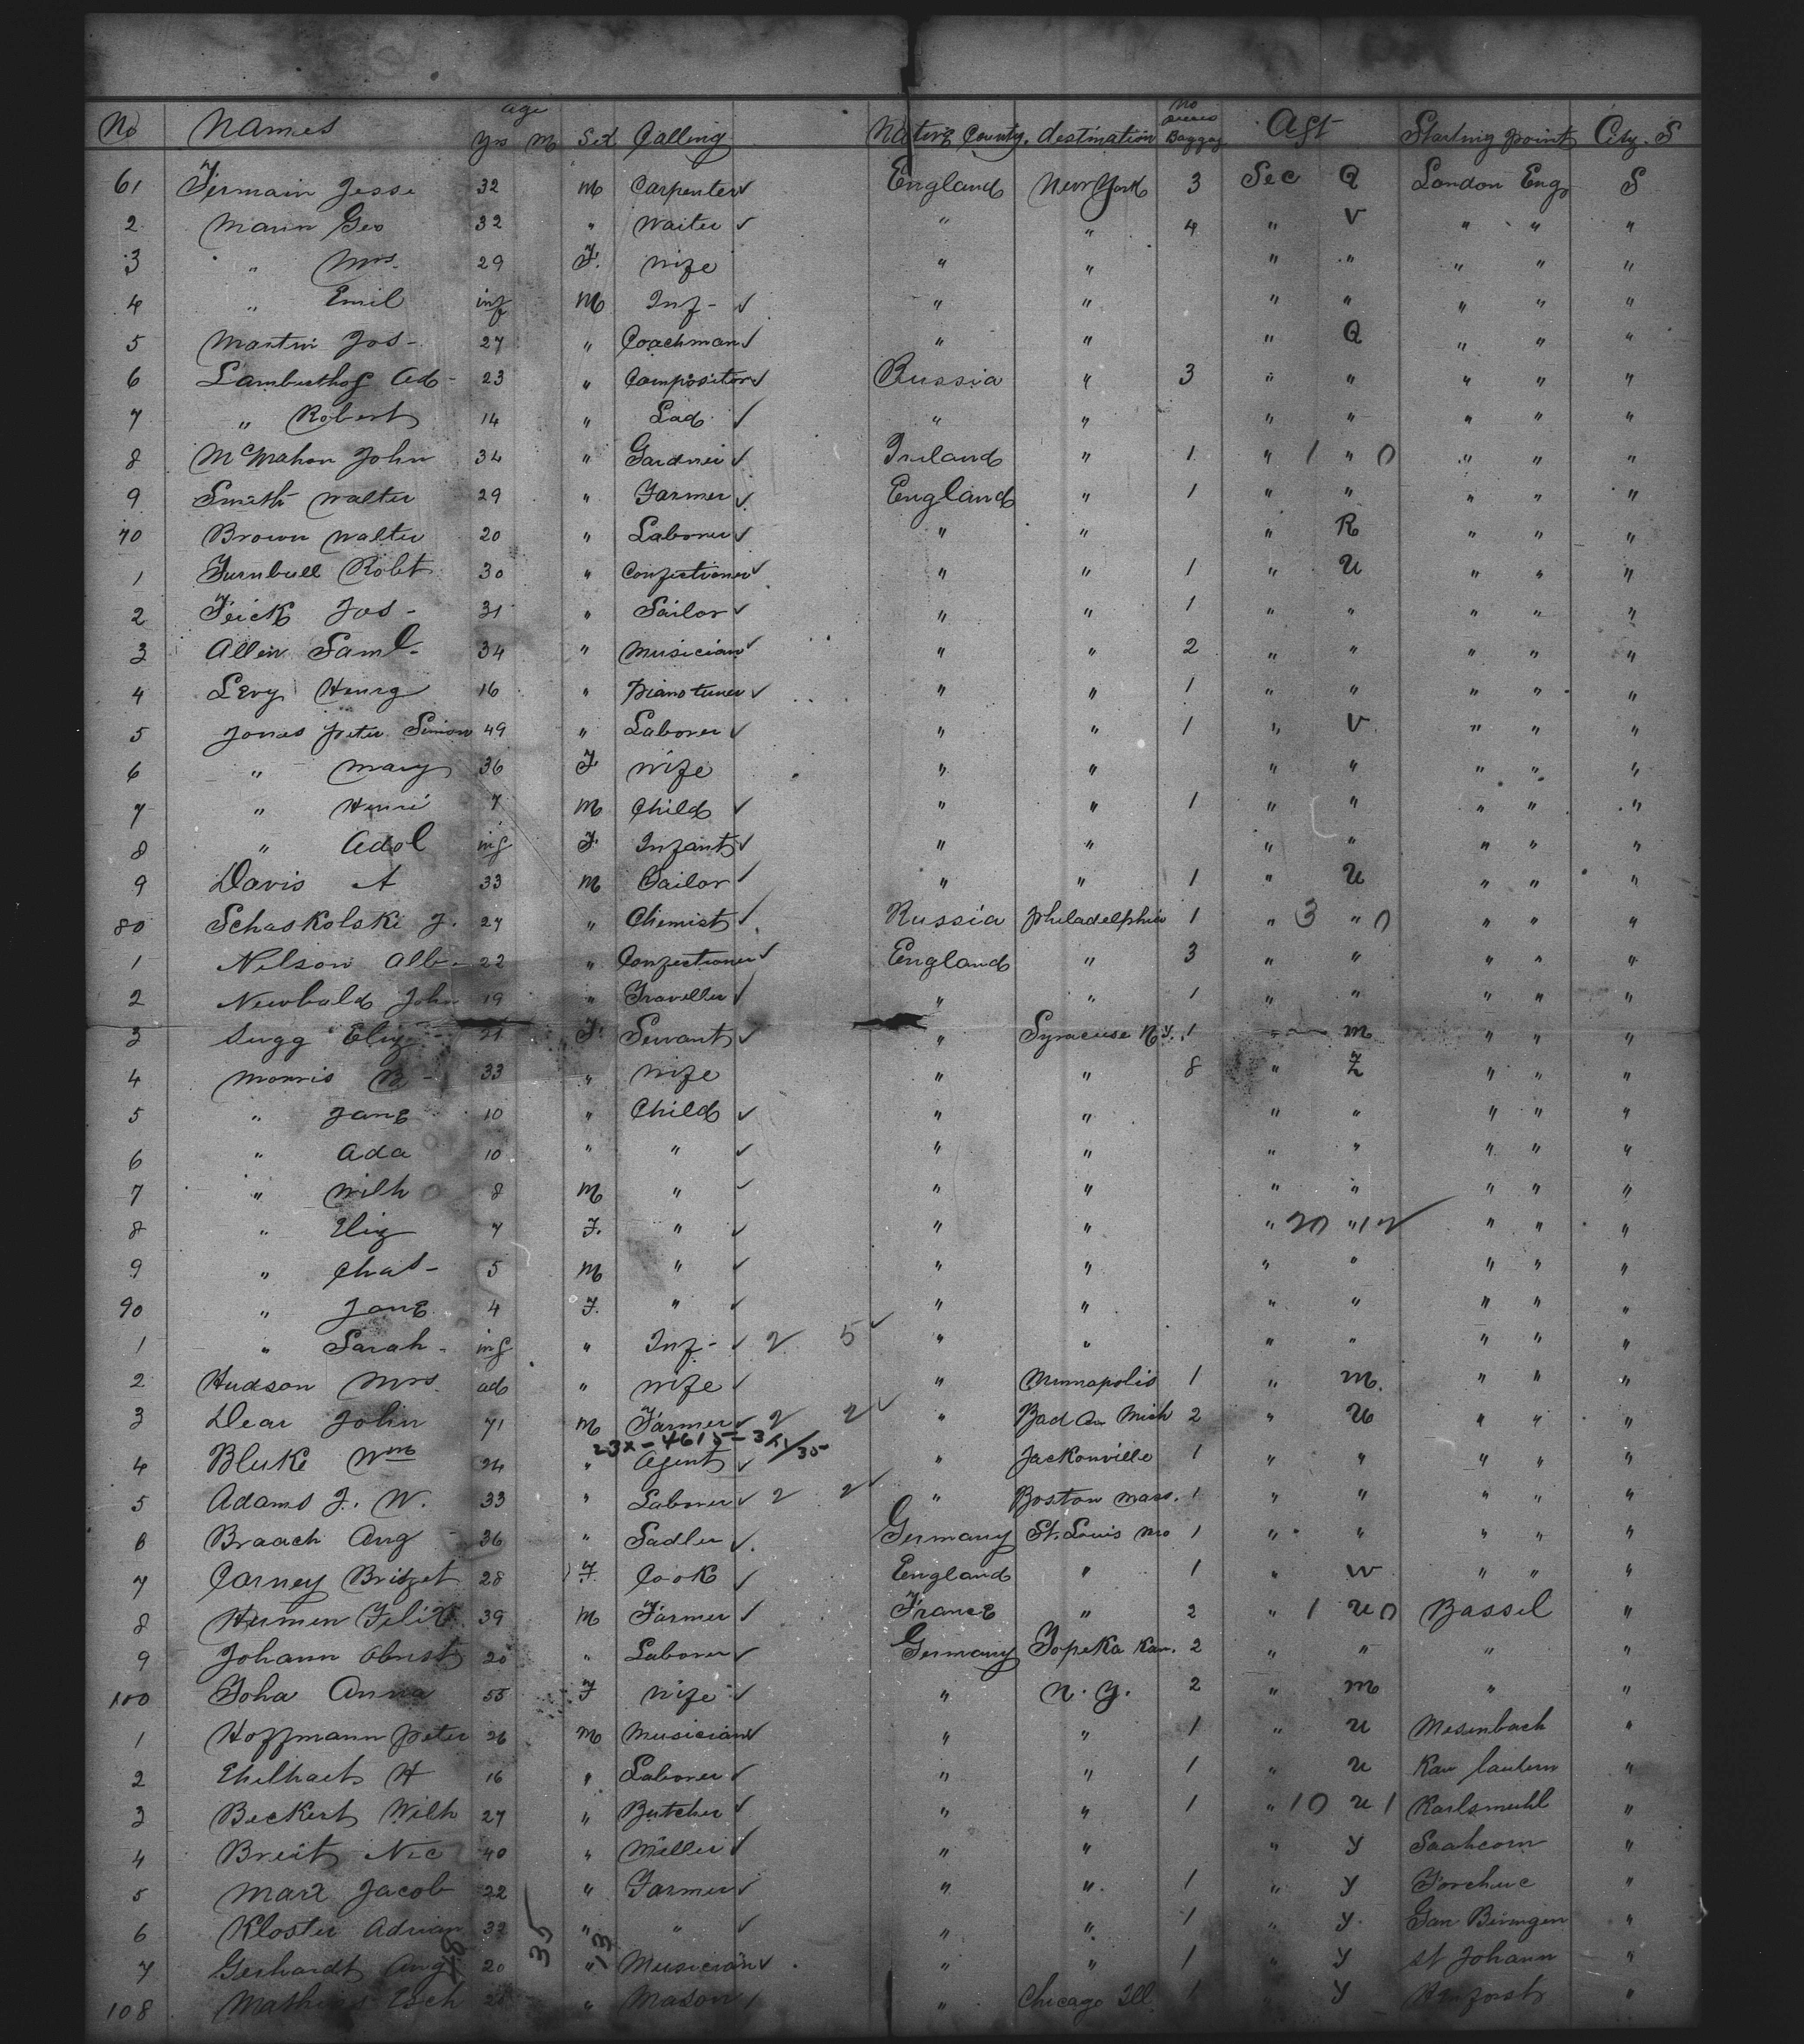 No Names age yrs M Sex Calling Native County. destination No pieces Baggag Aft Starting point City. S
61 Jermain Jesse 32 M Carpenter ✓ England New York 3 Sec Q London Eng S
2 Mann Geo 32 " Waiter ✓ " " 4 " V " " "
3 " Mrs. 29 F. Wife " " " " " " "
4 " Emil inf M Inf- ✓ " " " " " " "
5 Martin Jos- 27 " Coachman ✓ " " " Q " " "
6 Lamberthof Ad- 23 " Compositor ✓ Russia " 3 " " " " "
7 " Robert 14 " Lad ✓ " " " " " " "
8 McMahon John 34 " Gardner ✓ Ireland " 1 " 1 " 0 " " "
9 Smith Walter 29 " Farmer ✓ England " 1 " " " " "
70 Brown Walter 20 " Laborer ✓ " " " R " " "
1 Turnbull Robt 30 " Confectioner ✓ " " 1 " U " " "
2 Feick Jos- 31 " Sailor ✓ " " 1 " " " " "
3 Allen Saml- 34 " Musician ✓ " " 2 " " " " "
4 Levy Henry 16 " Piano tuner ✓ " " 1 " " " " "
5 Jones Peter Simon 49 " Laborer ✓ " " 1 " V " " "
6 " Mary 36 F Wife " " " " " " "
7 " Henri 7 M Child ✓ " " 1 " " " " "
8 " Adol inf F. Infant ✓ " " " " " " "
9 Davis A 33 M Sailor ✓ " " 1 " U " " "
80 Schaskolski J. 27 " Chemist ✓ Russia Philadelphia 1 " 3 " 0 " " "
1 Nelson Alb- 22 " Confectioner ✓ England " 3 " " " " "
2 Newbald John 19 " Traveller ✓ " " 1 " " " " "
3 Sugg Eliz- 21 F. Servant ✓ " Syracuse N.Y. 1 " M " " "
4 Morris B- 33 " Wife " " 8 " Z " " "
5 " Jane 10 " Child ✓ " " " " " " "
6 " Ada 10 " " ✓ " " " " " " "
7 " Wilh 8 M " ✓ " " " " " " "
8 " Eliz 7 F. " ✓ " " " 20 " 12 ✓ " " "
9 " Chas- 5 M " ✓ " " " " " " "
90 " Jane 4 F. " ✓ " " " " " " "
1 " Sarah- inf " Inf- ✓ 2 5 ✓ " " " " " " "
2 Hudson Mrs. ad " Wife ✓ " Minnapolis 1 " M. " " "
3 Dear John 71 M Farmer ✓ 2 2 ✓ " Bad Ax Mich 2 " U " " "
4 Bluke Wm 24 " Agent ✓ " Jackonville 1 " " " " "
5 Adams J. W. 33 " Laborer ✓ 2 2 ✓ " Boston Mass. 1 " " " " "
6 Braach Aug 36 " Sadler ✓ Germany St. Louis Mo 1 " " " " "
7 Carney Bridget 28 F. Cook ✓ England " 1 " W " " "
8 Hermen Felix 39 M Farmer ✓ France " 2 " 1 U 0 Bassel "
9 Johann Obrist 20 " Laborer ✓ Germany Topeka Kan. 2 " " " "
100 Joha Anna 55 F Wife ✓ " N. Y. 2 " M " "
1 Hoffmann Peter 26 M Musician ✓ " " 1 " U Mesenbach "
2 H 16 " Laborer ✓ " " 1 " U "
3 Beckert Wilh 27 " Butcher ✓ " " 1 " 10 U 1 Karlsmuhl "
4 Breit Nic 40 " Miller ✓ " " " Y "
5 Marx Jacob 22 " Farmer ✓ " " 1 " Y "
6 Kloster Adrian 32 " " ✓ " " 1 " Y. "
7 Gerhardt Aug 20 " Musician ✓ " " 1 " Y St Johann "
35 13
108 Esch " Mason " Chicago Ill. 1 Y "